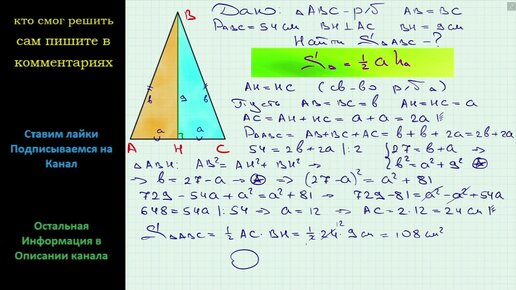 кто смог решить
сам пишите в
комментариях
Ставим лайки
Подписываемся на
Канал
Остальная
Информация в
Описании канала
B
в 9 в
a a
A H C
Дано: △ABC - р/б AB = BC
P△ABC = 54 см BH ⊥ AC BH = 9 см
Найти S△ABC - ?
S△ = ½ a hₐ
AH = HC (св-во р/б △)
Пусть AB = BC = в AH = HC = a
AC = AH + HC = a + a = 2a
P△ABC = AB + BC + AC = в + в + 2a = 2в + 2a
54 = 2в + 2a |: 2 { 27 = в + a →
△ABH: AB² = AH² + BH² → в² = a² + 9²
→ в = 27 - a → (27 - a)² = a² + 81
729 - 54a + a² = a² + 81 → 729 - 81 = a² - a² + 54a
648 = 54a |: 54 → a = 12 → AC = 2 · 12 = 24 см
S△ABC = ½ AC · BH = ½ 24 12 · 9 см = 108 см²